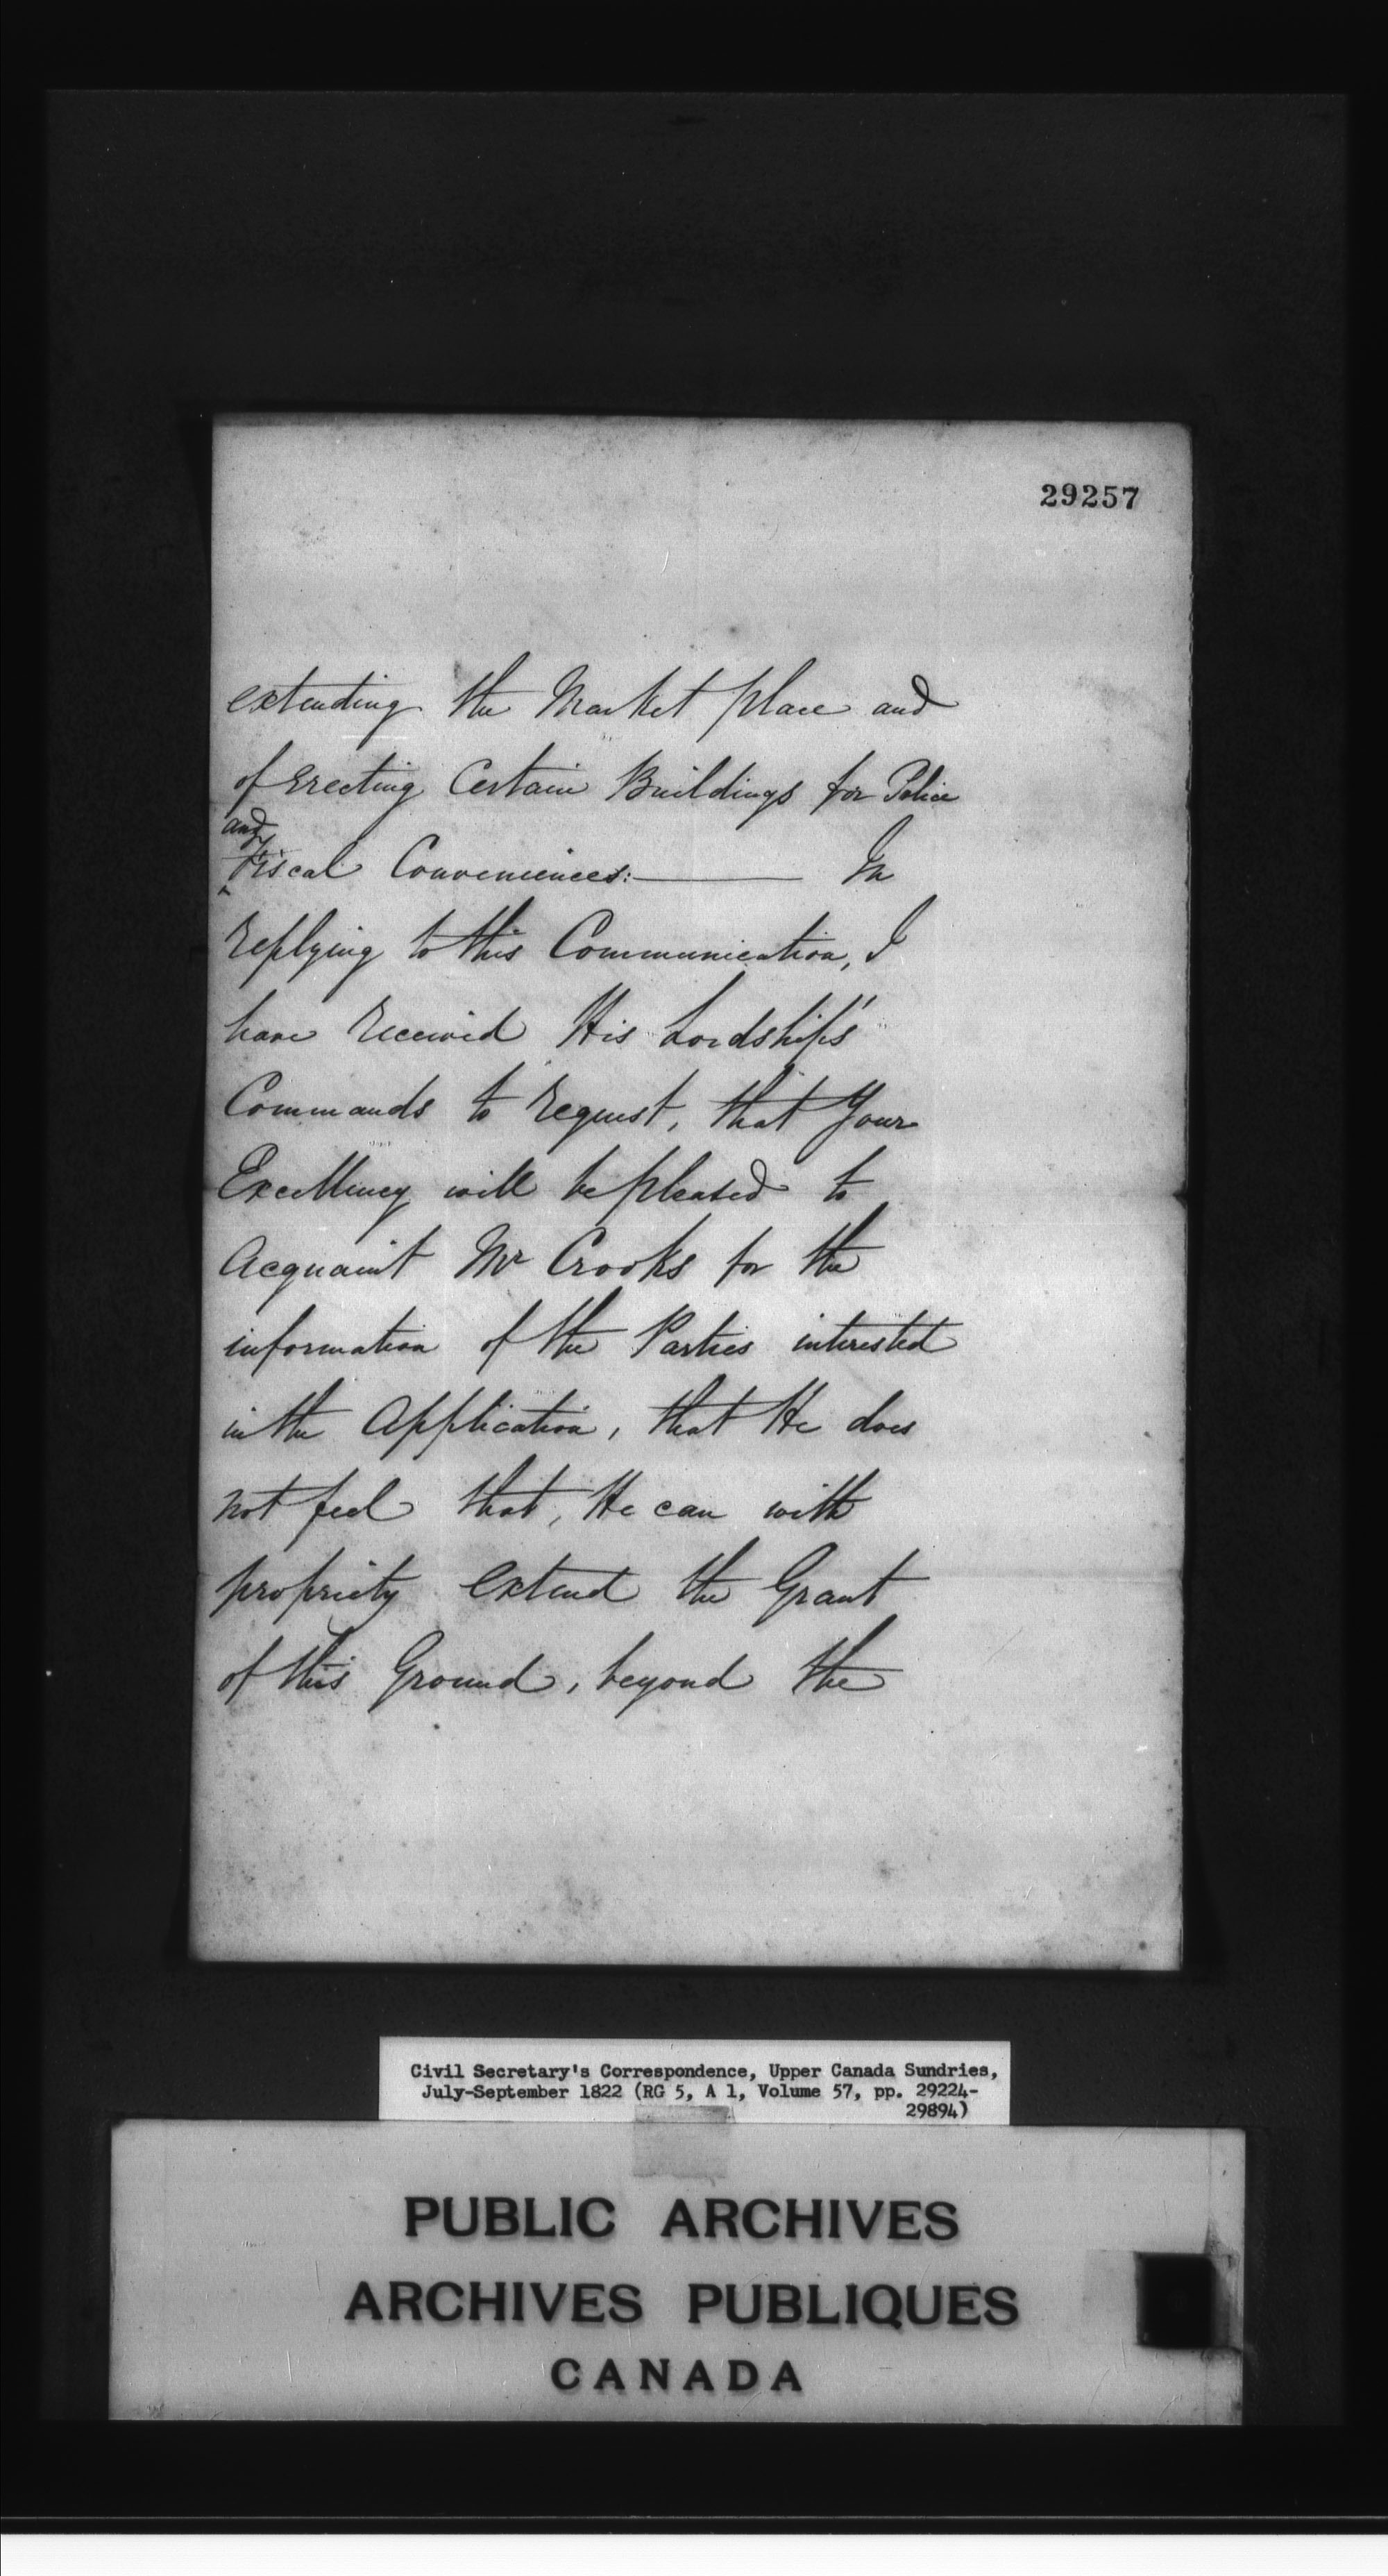 29257
extending the Market place and
of Erecting Certain Buildings for Police
and
Fiscal Conveniences:——— In
Replying to this Communication, I
have Received His Lordship's
Commands to Request, that Your
Excellency will be pleased to
Acquaint Mr Crooks for the
information of the Parties interested
in the Application, that He does
not feel that, He can with
propriety Extend the Grant
of this Ground, beyond the
Civil Secretary's Correspondence, Upper Canada Sundries,
July-September 1822 (RG 5, A 1, Volume 57, pp. 29224-
29894)
PUBLIC ARCHIVES
ARCHIVES PUBLIQUES
CANADA